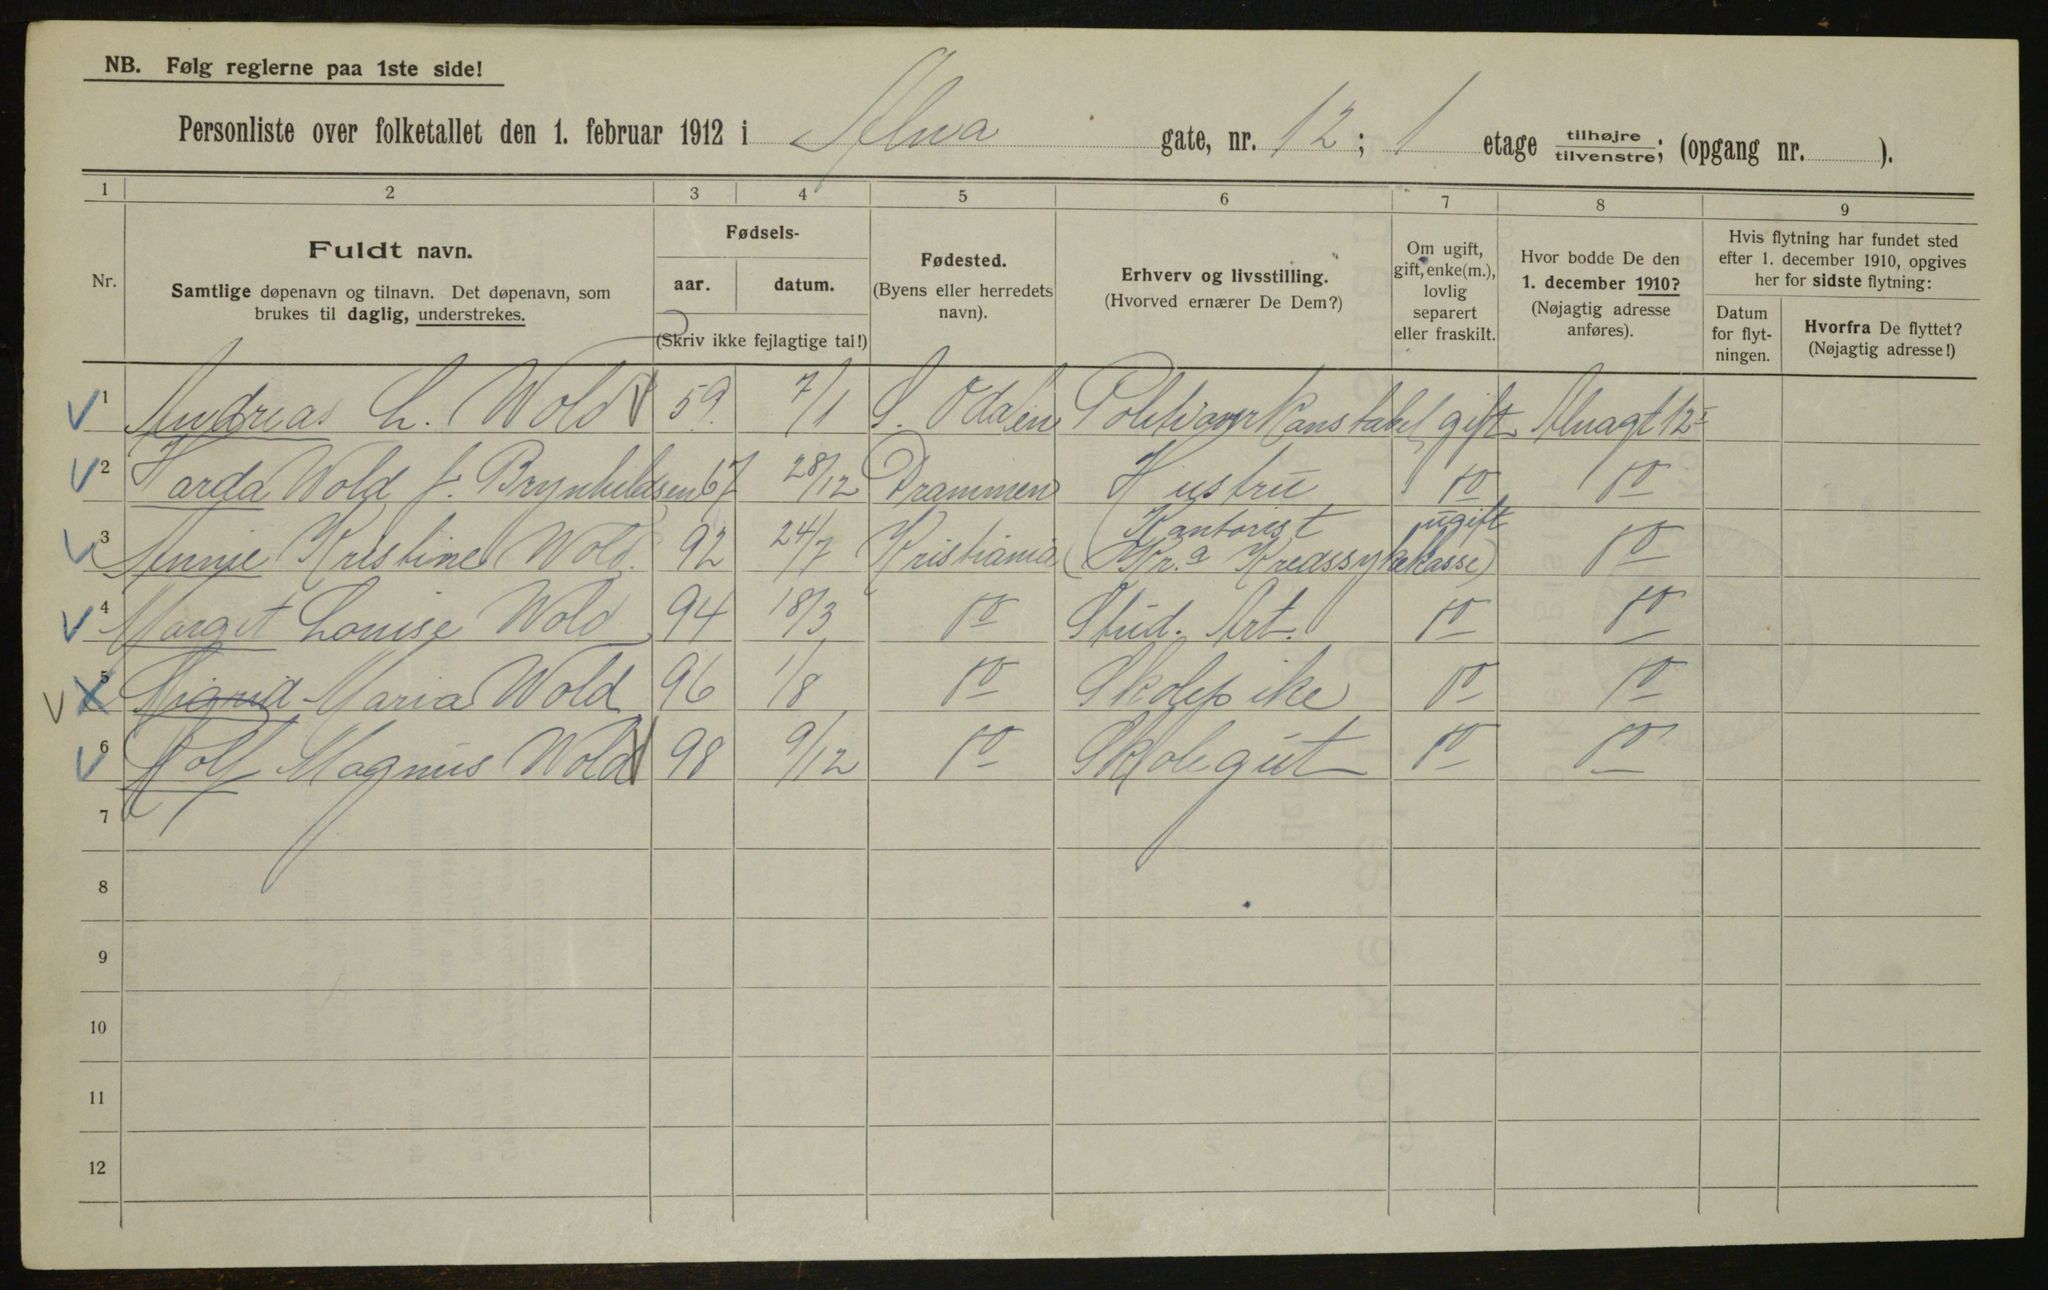 NB. Følg reglerne paa 1ste side!
Personliste over folketallet den 1. februar 1912 i Alna gate, nr. 12; 1 etage tilhøjre/tilvenstre; (opgang nr. ).
1 2 3 4 5 6 7 8 9
Nr.
Fuldt navn.
Samtlige døpenavn og tilnavn. Det døpenavn, som
brukes til daglig, understrekes.
Fødsels-
aar. datum.
(Skriv ikke fejlagtige tal!)
Fødested.
(Byens eller herredets
navn).
Erhverv og livsstilling.
(Hvorved ernærer De Dem?)
Om ugift,
gift, enke(m.),
lovlig
separert
eller fraskilt.
Hvor bodde De den
1. december 1910?
(Nøjagtig adresse
anføres).
Hvis flytning har fundet sted
efter 1. december 1910, opgives
her for sidste flytning:
Datum
for flyt-
ningen.
Hvorfra De flyttet?
(Nøjagtig adresse!)
1 Andreas L. Wold 59. 7/1 S. Odalen Politioverkonstabel gift Alnagt 12 I
2 Harda Wold f. Brynhildsen 67 28/12 Drammen Hustru do do
3 Annie Kristine Wold. 92 24/7 Kristiania Kontorist ugift do
(Kr.a Kredssykekasse)
4 Margit Louise Wold 94 18/3 do Stud. Art. do do
5 Sigrid Maria Wold 96 1/8 do Skolepike do do
6 Rolf Magnus Wold 98 9/12 do Skolegut do do
7
8
9
10
11
12